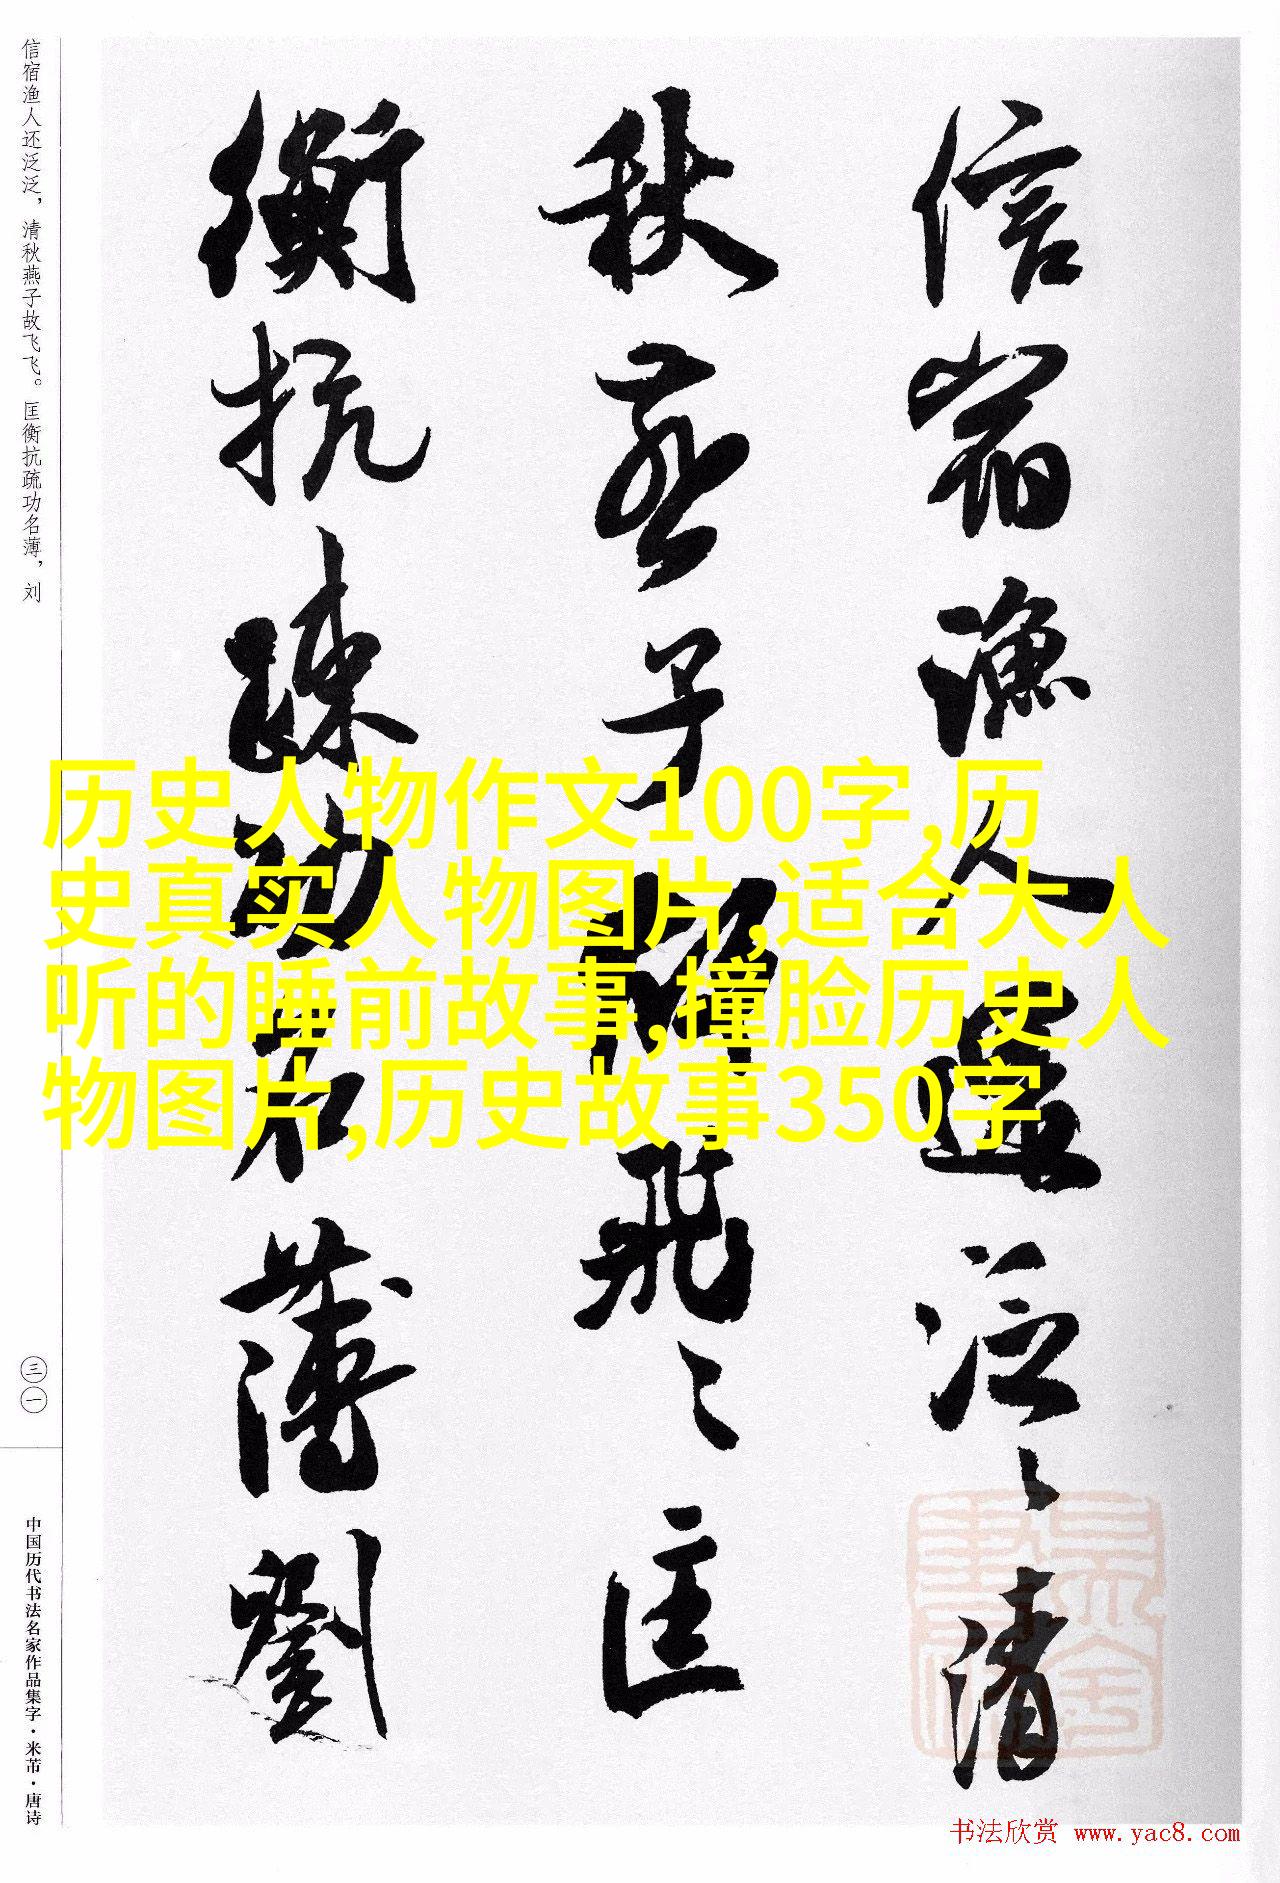 信宿渔人还泛泛，清秋燕子故飞飞。匡衡抗疏功名薄，刘
三一
中国历代书法名家作品集字·米芾·唐诗
信宿漁人還泛〻清
秋燕子故飛〻匡
衡抗疏功名薄劉
历史人物作文100字,历
史真实人物图片,适合大人
听的睡前故事,撞脸历史人
物图片,历史故事350字
书法欣赏 www.yac8.com